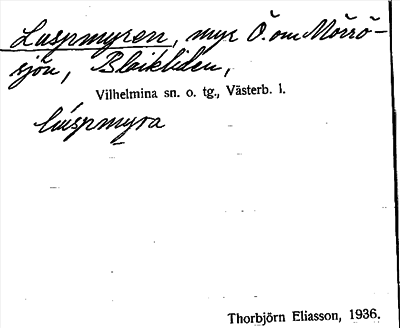 Luspmyren, myr Ö. om Mörrö-
sjön, Blaikliden,
Vilhelmina sn. o. tg., Västerb. l.
lúspmyra
Thorbjörn Eliasson, 1936.